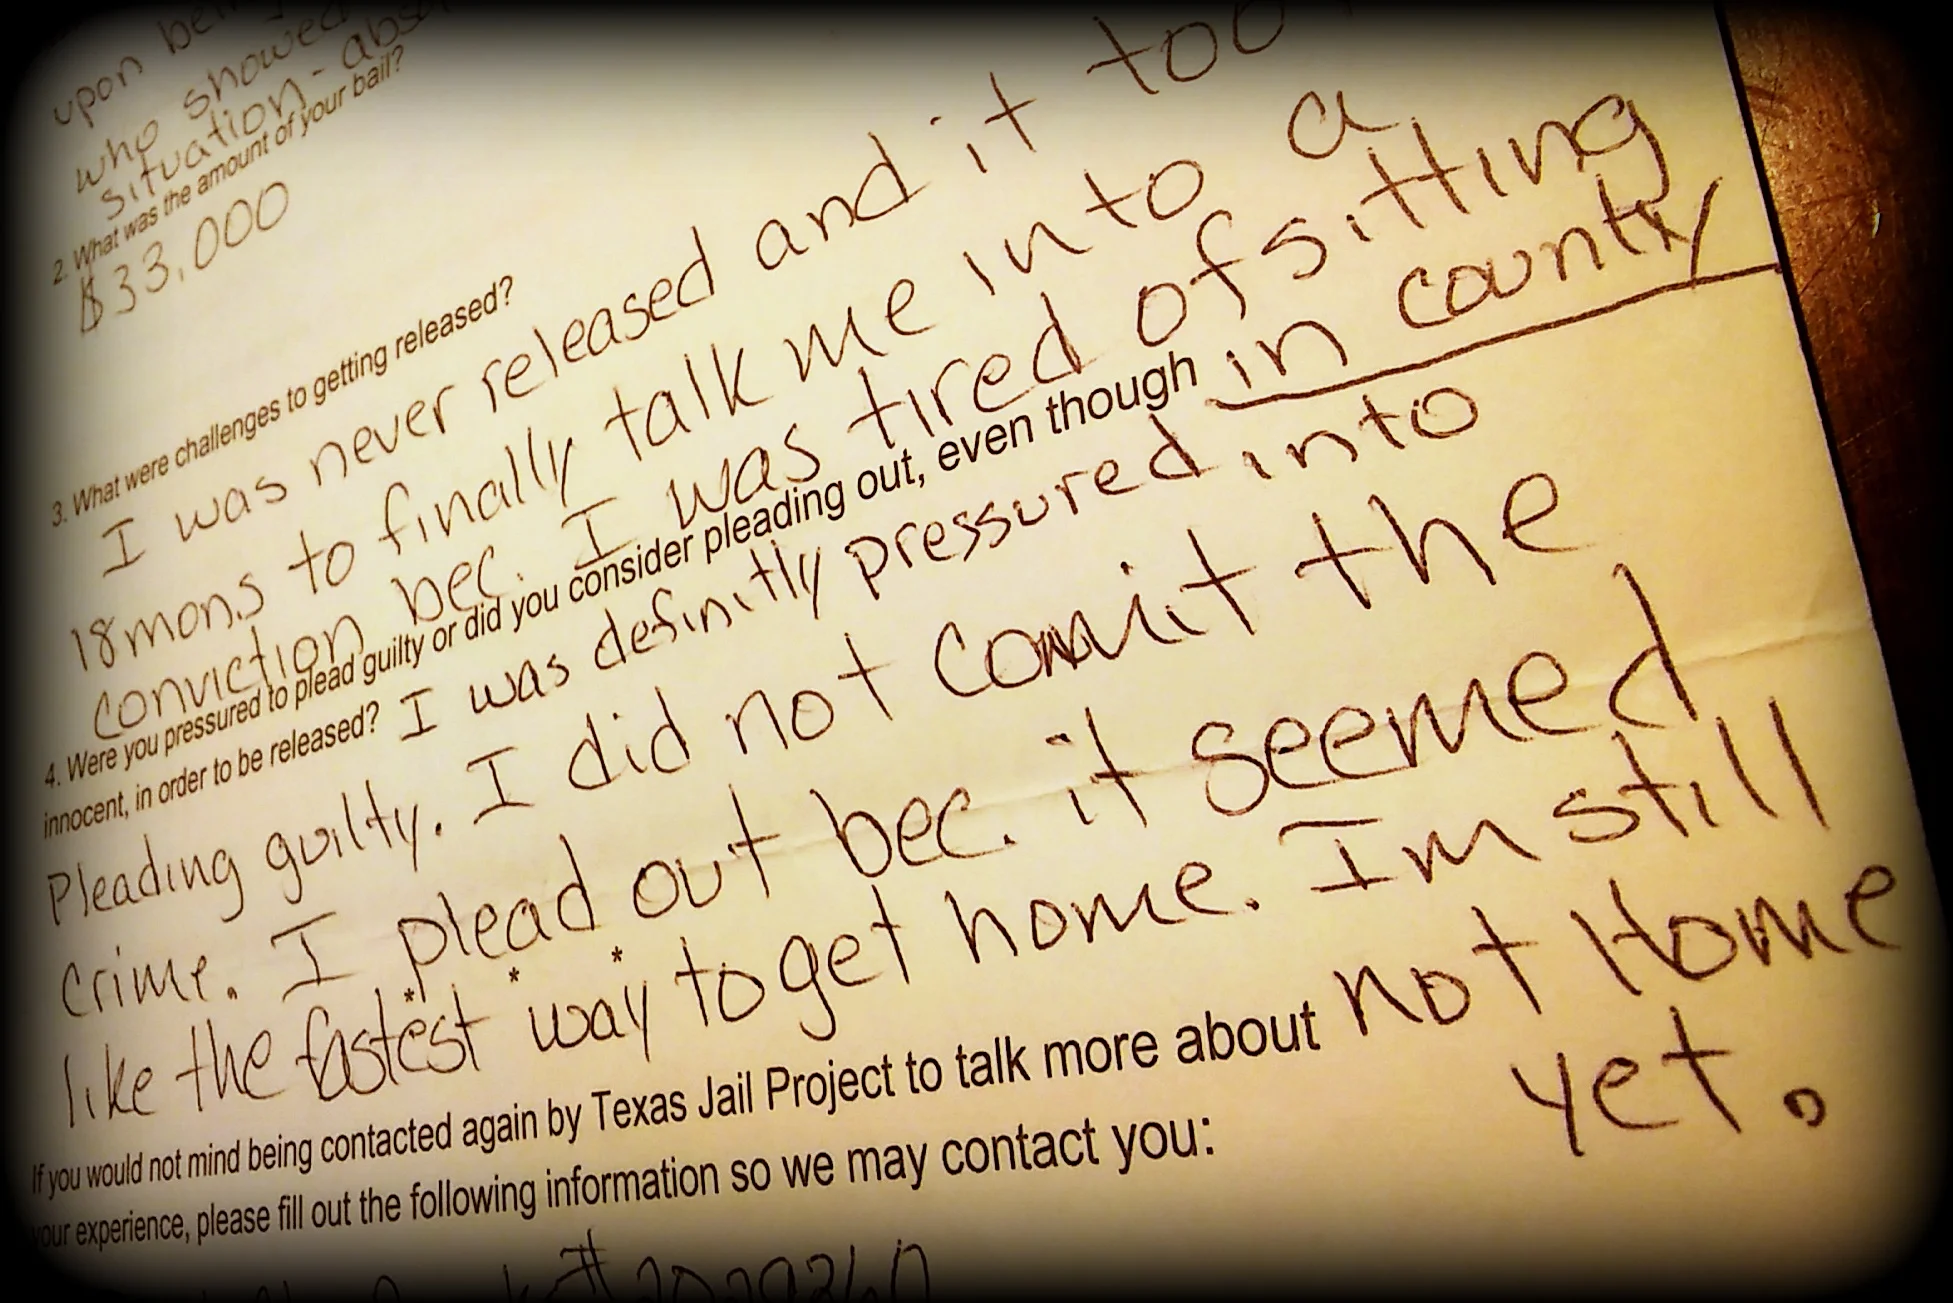 upon
who showed
situation - abs
2. What was the amount of your bail?
$33,000
3. What were challenges to getting released?
I was never released and it too
18mons to finally talk me into a
conviction bec. I was tired of sitting
in county
4. Were you pressured to plead guilty or did you consider pleading out, even though
innocent, in order to be released? I was definitly pressured into
Pleading guilty. I did not commit the
crime. I plead out bec. it seemed
like the fastest way to get home. Im still
not Home
yet.
* * *
If you would not mind being contacted again by Texas Jail Project to talk more about
your experience, please fill out the following information so we may contact you: